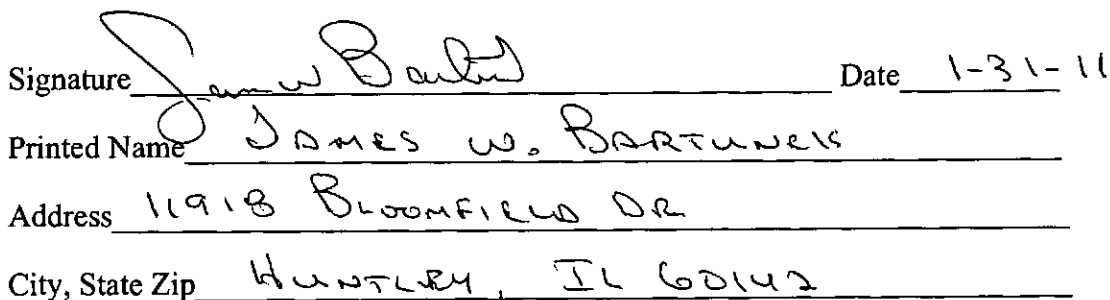 Signature James W Bartunek Date 1-31-11
Printed Name JAMES W. BARTUNEK
Address 11918 BLOOMFIELD DR
City, State Zip HUNTLEY, IL 60142